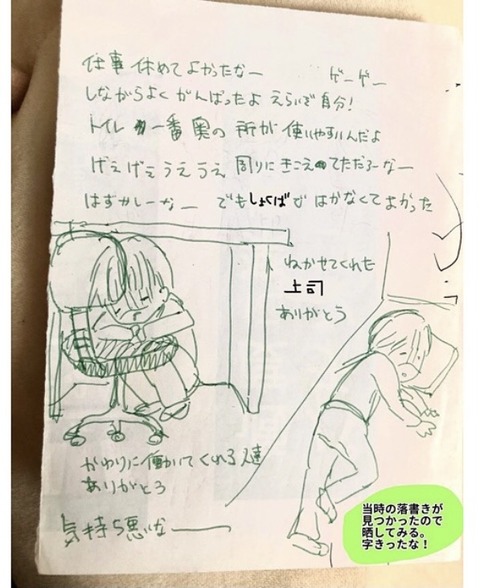 仕事 休めてよかったなー
ゲーゲー
しながらよく がんばったよ えらいぞ自分!
トイレ 一番奥の 所が 使いやすいんだよ
げぇげぇうえうえ 周りに きこえてただろーなー
はずかしーなー でもしょくばで はかなくてよかった
ねかせてくれた
上司
ありがとう
かわりに働いてくれる人達
ありがとう
気持ち悪いなー
当時の落書きが
見つかったので
晒してみる。
字きったな!